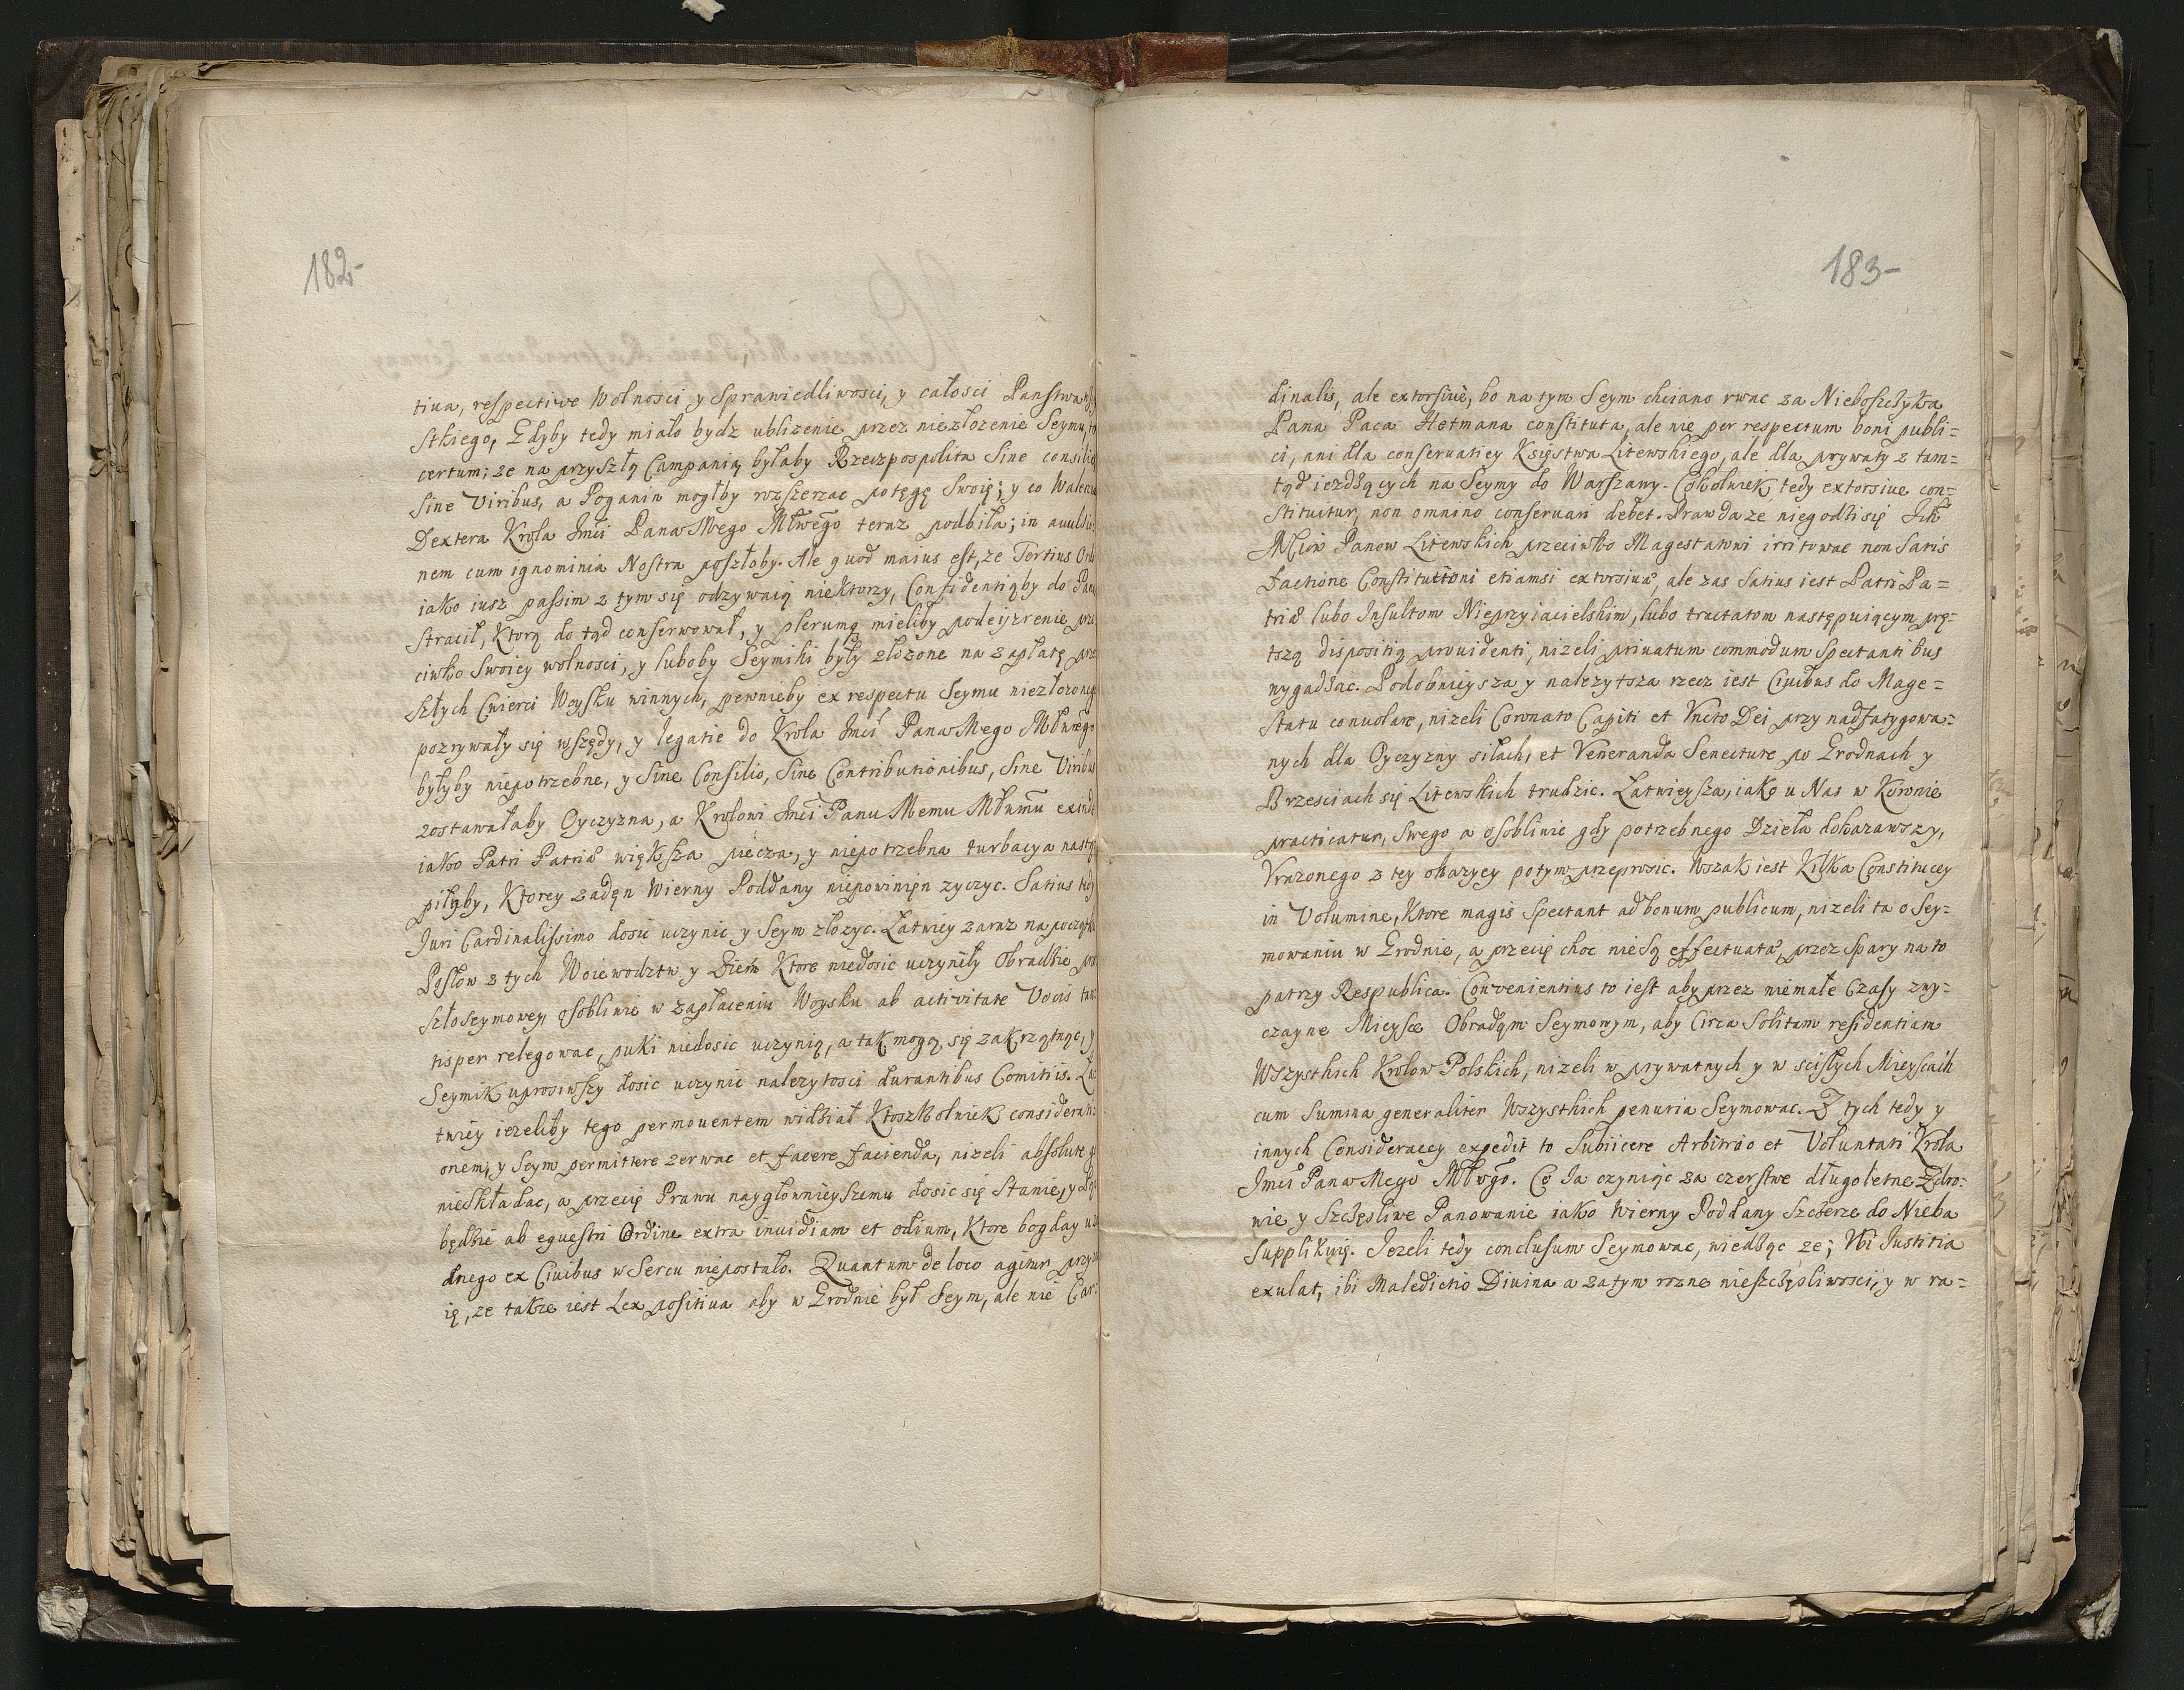 182
tiua, respectiue Wolnosci y Sprawiedliwosci, y całosci Panstwa
stkiego, Gdyby tedy miało bydz ublizenie przez niezłozenie Seymu,
certum; ze na przyszłą Campanią byłaby Rzeczpospolita Sine consilio
Sine Viribus, a Poganin mogłby rozszerzac potęgę Swoię; y co Walena
Dextera Krola Jmći Pana Mego Młwego teraz podbiła; in auulsio
nem cum ignominia Nostra poszłoby. Ale quod maius est, ze Tertius Ordo
iako iusz passim z tym się odzywaią niektorzy, Confidentiąby do Pana
stracił, Ktorą do tąd conserwował, y plerumq mieliby podeiyzrenie prze
ciwko Swoiey wolnosci, y luboby Seymiki były złozone na zapłatę prze
szłych Cwierci Woysku winnych, pewnieby ex respectu Seymu niezłozonego
pozrywały się wszędy, y legatie do Krola Jmći Pana Mego Młwego
byłyby niepotrzebne, y Sine Consilio, Sine Contributionibus, Sine Viribus
zostawałaby Oyczyzna, a Krolowi Jmći Panu Memu Młwmu exinde
iako Patri Patriæ większa piecza, y niepotrzebna turbacya nastą
piłyby, Ktorey zadęn Wierny Poddany niepowinięn zyczyc. Satius tedy
Juri Cardinalissimo dosic uczynic y Seym złozyc. Łatwiey zaraz na początku
Posłow z tych Woiewodztw y Ziem Ktore niedosic uczyniły Obradzie prze
szłoSeymowey, osobliwie w zapłaceniu Woysku ab activitate Vocis tan
tisper relegowac, puki niedosic uczynią, a tak mogą się zakrzątnąc, y
Seymik uprosiwszy dosic uczynic nalezytosci durantibus Comitiis. Ła
twiey iezeliby tego permouentem widział Ktoszkolwiek considerati
onem, y Seym permittere zerwac et facere facienda, nizeli absolute go
nieskładac, a przecię Prawu naygłownieyszemu dosic się Stanie, y
będzie ab equestri Ordine extra inuidiam et odium, Ktore bogday
dnego ex Ciuibus w Sercu niepostało. Quantum de loco agitur
ię, ze takze iest Lex positiua aby w Grodnie był Seym, ale nie Car
183
dinalis, ale extorsiuè, bo na tym Seym chciano rwac za Nieboszczyka
Pana Paca Hetmana constituta, ale nie per respectum boni publi=
ci, ani dla conseruatiey Księstwa Litewskiego, ale dla prywaty z tam=
tąd iezdzących na Seymy do Warszawy. Cokolwiek tedy extorsiue con=
stituitur, non omnino conseruari debet. Prawda ze niegodzi się Ich
Mciow Panow Litewskich przeciwko Magestatowi irritowac non Satis
factione Constitutioni etiamsi extorsiuæ, ale zas Satius iest Patri Pa=
triæ lubo Insultom Nieprzyiacielskim, lubo tractatom następuiącym prę=
tszą dispositią prouidenti, nizeli priuatum commodum Spectantibus
wygadzac. Podobnieysza y nalezytsza rzecz iest Ciuibus do Mage=
statu conuolare, nizeli Coronato Capiti et Vncto Dei przy nadfatygowa=
nych dla Oyczyzny siłach, et Veneranda Senecture po Grodnach y
Brzesciach się Litewskich trudzic. Łatwieysza, iako u Nas w Koronie
practicatur, Swego a osobliwie gdy potrzebnego Dzieła dokazawszy,
Vrazonego z tey okazycy potym przeprosic. Wszak iest Kilka Constitucey
in Volumine, Ktore magis Spectant ad bonum publicum, nizeli ta o Sey=
mowaniu w Grodnie, a przecię choc nieSą effectuatæ, przez Spary na to
patrzy Respublica. Convenientius to iest aby przez niemałe Czasy zwy=
czayne Mieysce Obradąm Seymowym, aby Circa Solitam residentiam
Wszystkich Krolow Polskich, nizeli w prywatnych y w scisłych Mieyscach
cum Summa generaliter Wszystkich penuria Seymowac. Z tych tedy y
innych Consideracey expedit to Subiicere Arbitrio et Voluntati Krola
Jmći Pana Mego Młwgo. Co Ja czyniąc za czerstwe długoletne Zdro=
wie y Szczęsliwe Panowanie iako Wierny Poddany Szczerze do Nieba
Supplikuię. Jezeli tedy conclusum Seymowac, wiedząc ze; Vbi Justitia
exulat, ibi Maledictio Diuina a zatym rozne nieszczęsliwosci, y w ra=